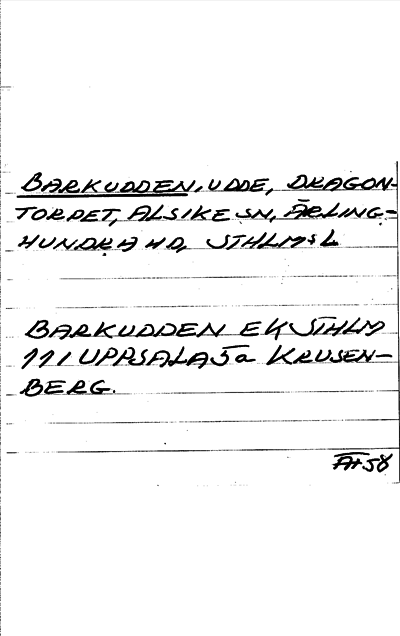 BARKUDDEN, UDDE, DRAGON-
TORPET, ALSIKE SN, ÄRLING-
HUNDRA HD, STHLMS L
BARKUDDEN EK STHLM
111 UPPSALA 5a KRUSEN-
BERG.